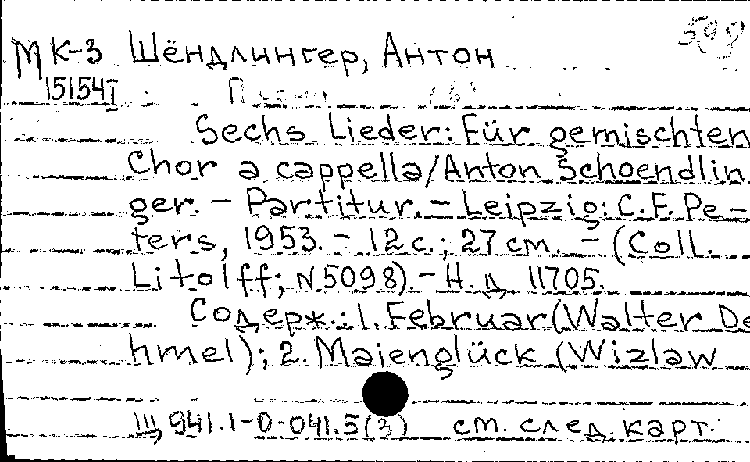 МК-3 Шёндлингер, Антон 599
15154I
Sechs Lieder: Für gemischten
Chor a cappella/Anton Schoendlin
ger. - Partitur. - Leipzig: C.F. Pe-
ters, 1953. - 12 с.; 27 см. - (Coll.
Litolff; N 5098). - Н. д. 11705.
Содерж.: 1. Februar (Walter De
hmel); 2. Maienglück (Wizlaw
Ш, 941.1-0-041.5(3) см. след. карт.